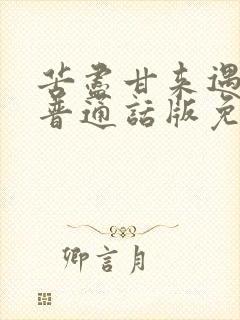 苦盡甘來遇
普通話版免
卿言月